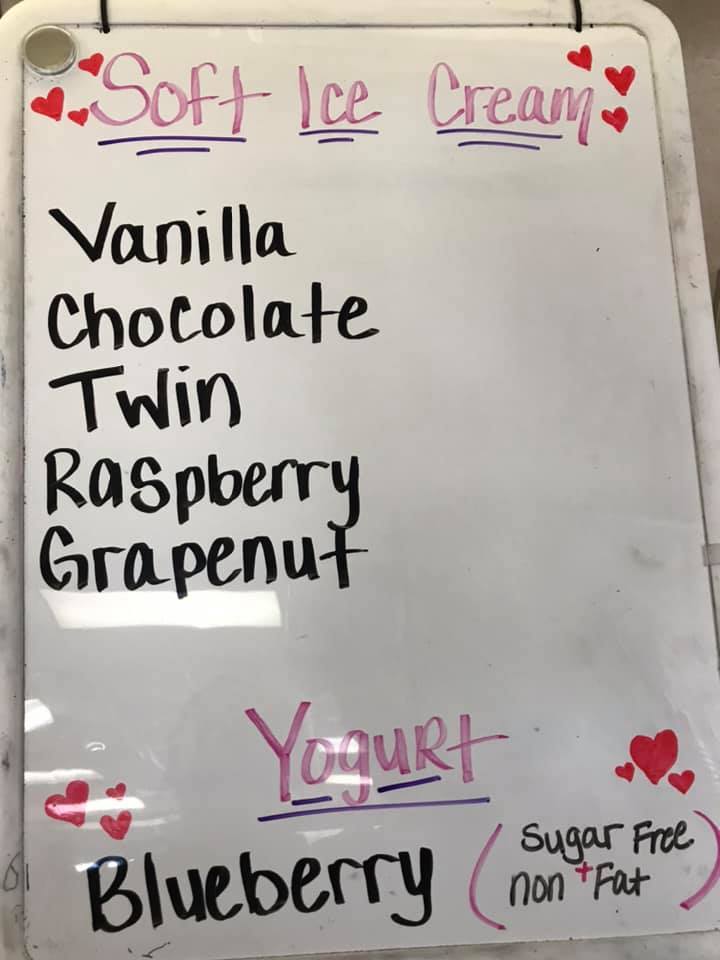 Soft Ice Cream
Vanilla
Chocolate
Twin
Raspberry
Grapenut
Yogurt
Blueberry (Sugar Free
non + Fat)